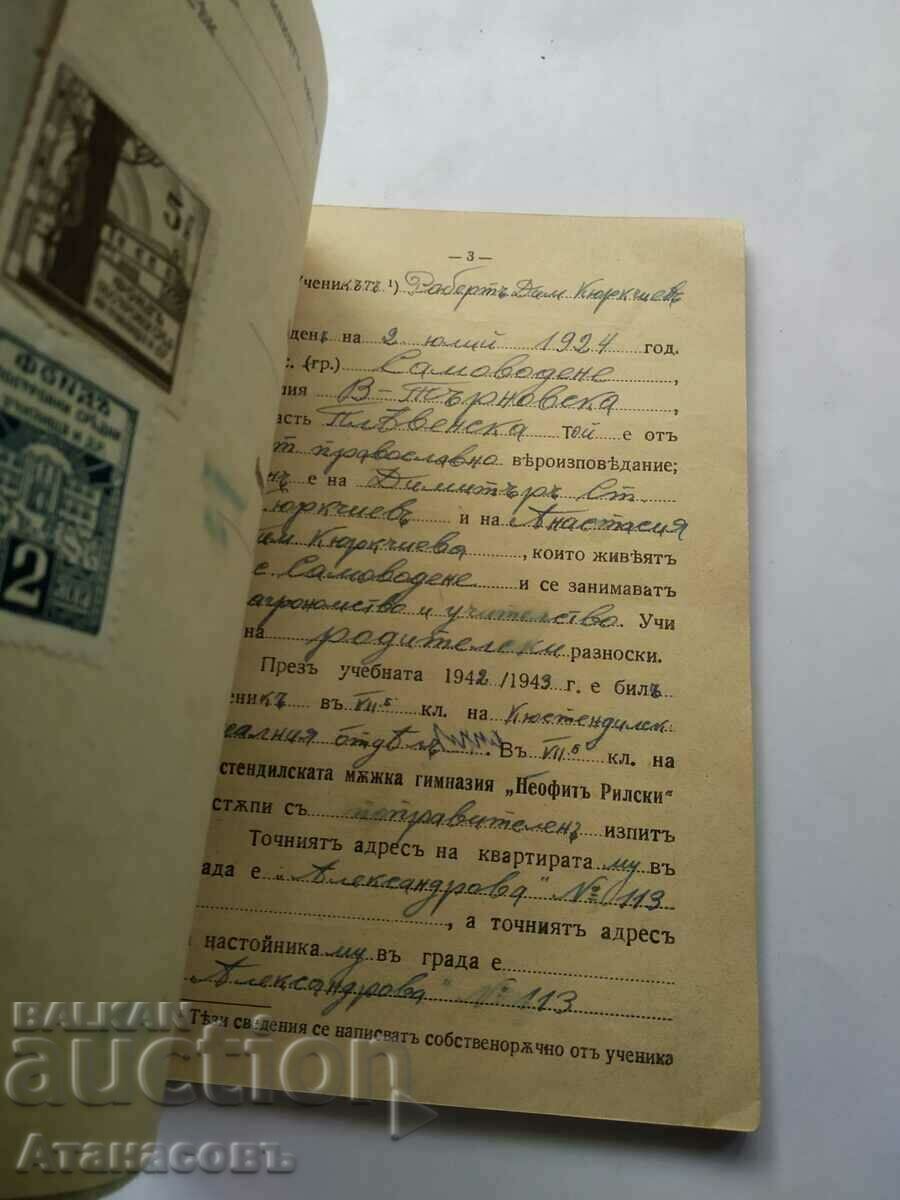 5
ФОНДЪ
ФОНДЪ
2
— 3 —
Ученикътъ ¹) Робертъ Дим Кюркчиевъ
на 2 юлий 1924 год.
(гр.) Самоводене ,
В-Търновска ,
Плѣвенска той е отъ
православно вѣроизповѣдание;
е на Димитъръ Ст.
Кюркчиевъ и на Анастасия
Дим Кюркчиева , които живѣятъ
с. Самоводене и се занимаватъ
агрономство и учителство. Учи
на родителски разноски.
Презъ учебната 1942/1943 г. е билъ
въ VII б кл. на Кюстендилск
отдѣлъ . Въ VII б кл. на
стендилската мѫжка гимназия „Неофитъ Рилски“
стѫпи съ поправителенъ изпитъ
Точниятъ адресъ на квартирата му въ
ада е „Александрова“ № 113
, а точниятъ адресъ
настойника му въ града е
„Александрова“ № 113
Тѣзи сведения се написватъ собственорѫчно отъ ученика
BALKAN
auction
Атанасовъ